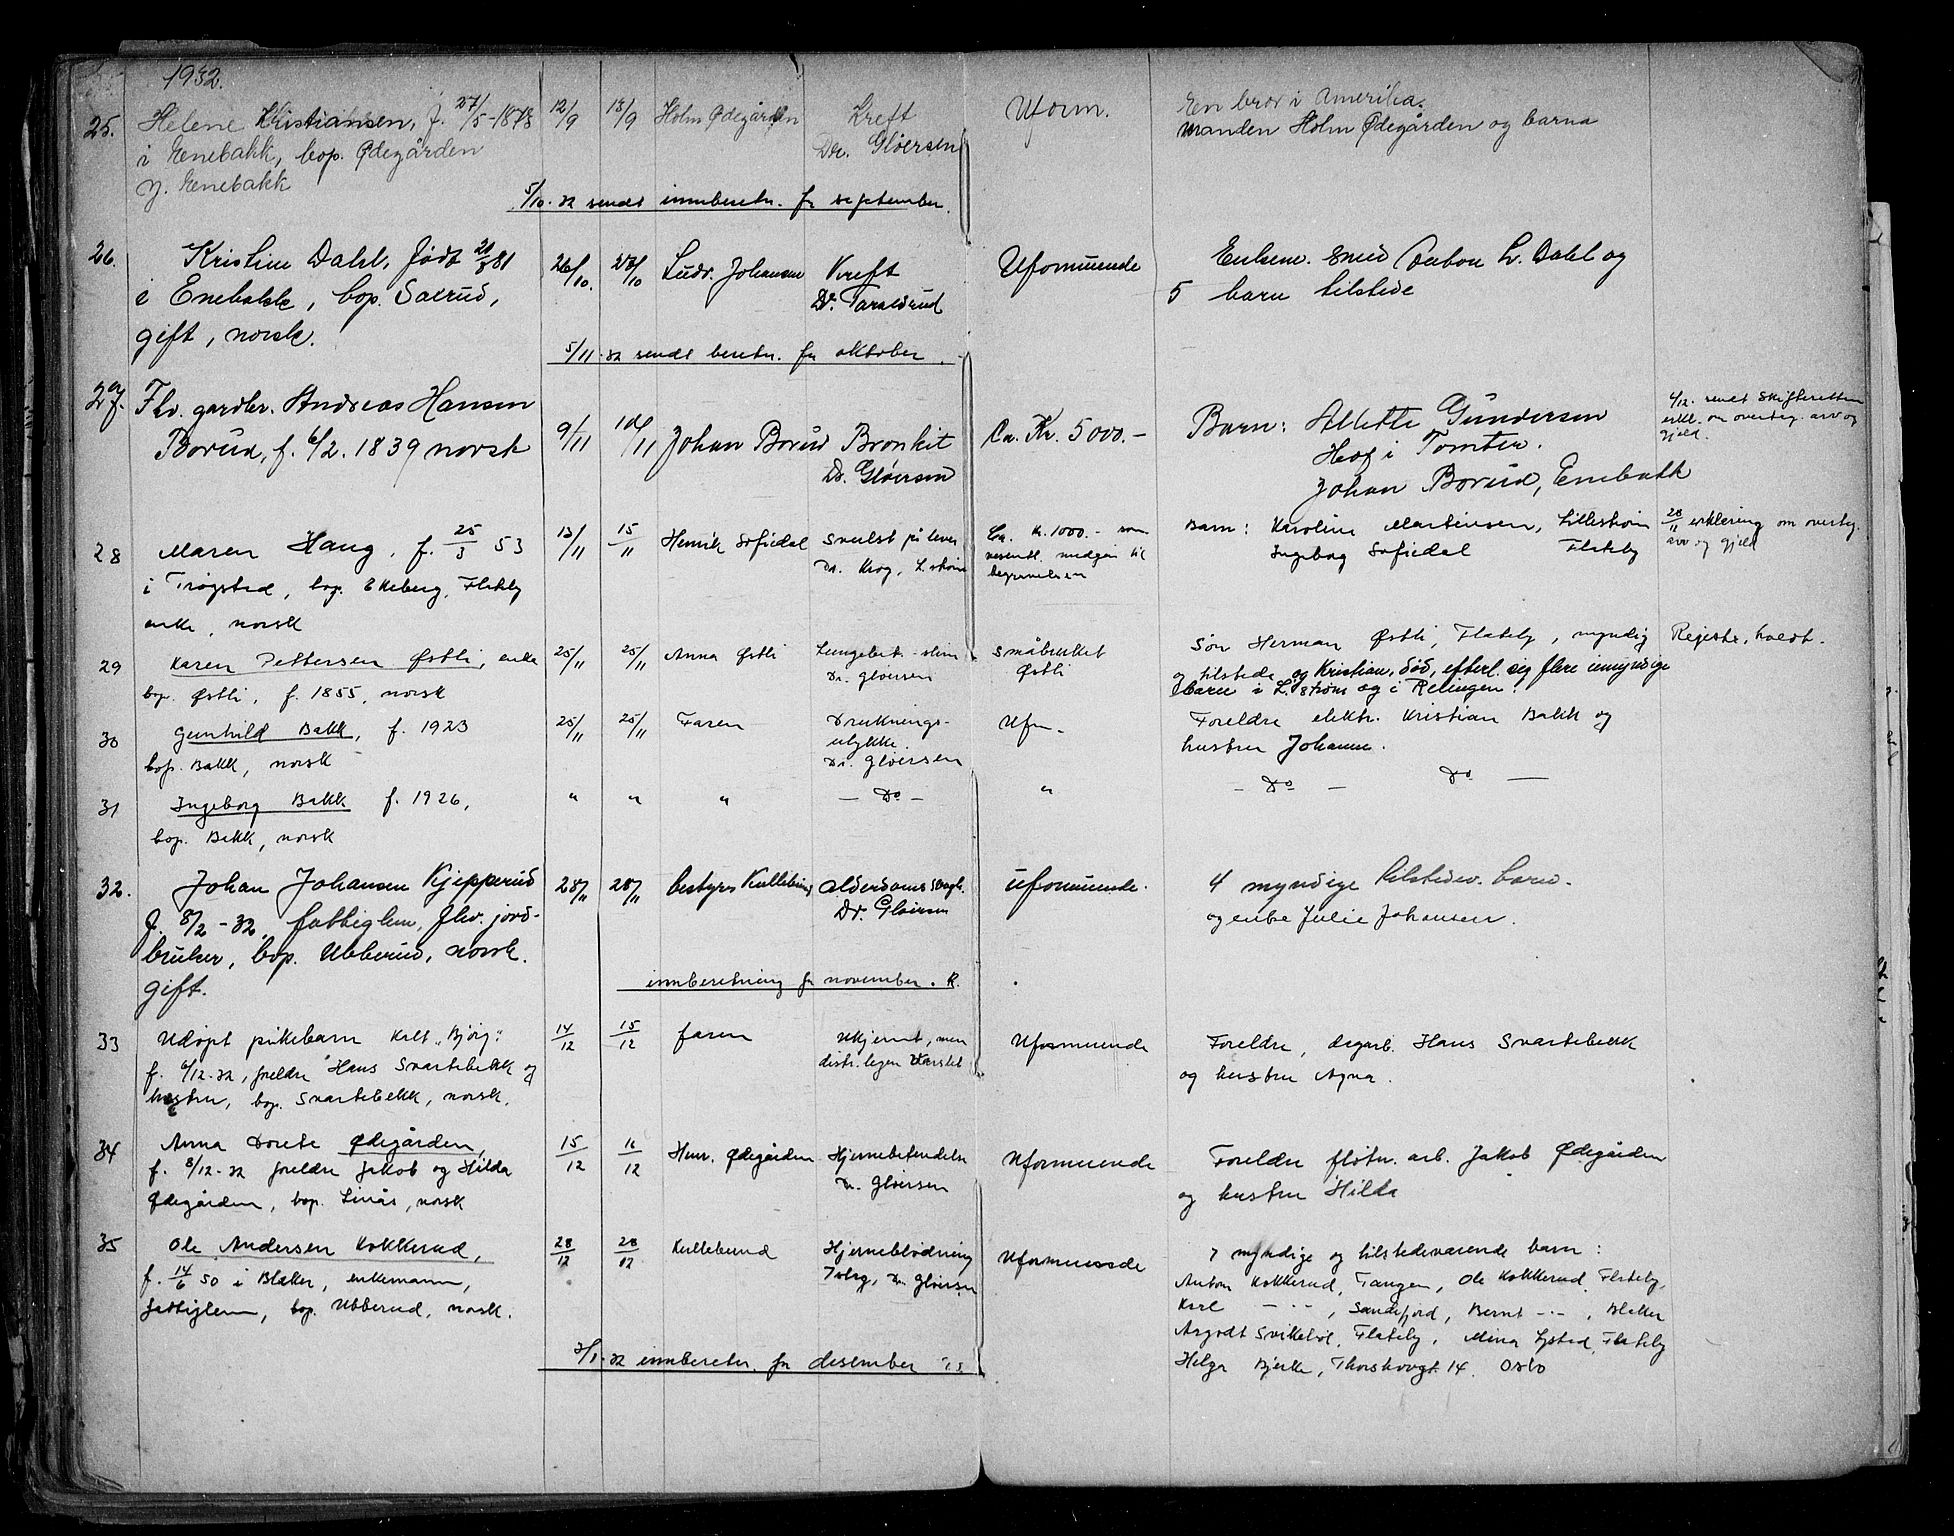 1932.
25. Helene Kristiansen, f. 27/5-1878 12/9 13/9 Holm Ødegården Kreft Uform. En bror i Amerika.
i Enebakk, bop. Ødegården Dr. Gløersen Manden Holm Ødegården og barna
Y. Enebakk
5/10-32 sendt innberetn. for september.
26. Kristine Dahl, født /81 26/10. 27/10 Ludv. Johansen Kreft Uformuende Enkem. smed Anton L. Dahl og
i Enebakk, bop. Sætrud, Dr. Taraldrud 5 barn tilstede
gift, norsk.
5/11-32 sendt beretn. for oktober.
27. Fhv. gardbr. Andreas Hansen 9/11 10/11 Johan Borud Bronkit Ca. Kr. 5000.- Barn: Alette Gundersen 6/12. sendt skifteretten
Borud, f. 6/2. 1839 norsk Dr. Gløersen Hof i Tomter. erkl. om overtag. arv og
Johan Borud, Enebakk gjeld.
28 Maren Haug, f. 25/3 53 13/11 15/11 Henrik Sofiedal Svulst på lever Ca. kr. 1000.- som Barn: Karoline Martinsen, Lillestrøm 28/11 erklering om overtag.
i Trøgstad, bop. Ekeberg, Flateby Dr. Krog, L.strøm vesentl. medgår til Ingeborg Sofiedal Flateby arv og gjeld
enke, norsk begravelsen
29 Karen Pettersen Østli, enke 25/11 25/11 Anna Østli Lungebet. Småbruket Søn Herman Østli, Flateby, myndig Registr. holdt.
bop. Østli, f. 1855, norsk Dr. Gløersen Østli og tilstede og Kristian, død, efterl. sig flere umyndige
barn i L.strøm og i Relingen.
30 Gunhild Bakk, f. 1923 25/11 25/11 Faren Druknings- Ufm. Foreldre elektr. Kristian Bakk og
bop. Bakk, norsk ulykke. hustru Johanne.
Dr. Gløersen
31 Ingeborg Bakk f. 1926, " " " - Do - " - Do - Do -
bop. Bakk, norsk
32. Johan Johansen Kjepperud 28/11 28/11 bestyrer Kullebund alderdomssvagh. uformuende. 4 myndige tilstedev. barn.
f. 8/2-32, fattiglem, fhv. jord- Dr. Gløersen og enke Julie Johansen.
bruker, bop. Ubberud, norsk.
gift.
innberetning for november. R.
33 Udøpt pikebarn kalt "Bjørg" 14/12 15/12 faren Ukjent, men Uformuende Foreldre, dagarb. Hans Svartebekk
f. 6/12-32, foreldre Hans Svartebekk og distr.legen varslet og hustru Agna.
hustru, bop. Svartebekk, norsk.
34 Anna Dorete Ødegården, 15/12 16/12 Henr. Ødegården Hjernebetendelse Uformuende Foreldre fløtn. arb. Jakob Ødegården
f. 8/12-32 foreldre Jakob og Hilda Dr. Gløersen og hustru Hilda
Ødegården, bop. Linås, norsk
35 Ole Andersen Kokkerud, 28/12 28/12 Kullebund Hjerneblødning Uformuende 7 myndige og tilstedeværende barn:
f. 14/6 50 i Blaker, enkemann, Dr. Gløersen Anton Kokkerud, Tangen, Ole Kokkerud, Flateby,
fattiglem, bop. Ubberud, norsk. Karl - " - , Sandefjord, Bernt - " - , Blaker
Asgodt Svikebøl, Flateby, Mina Lystad, Flateby
3/1-32 innberetn. for desember Helga Bjerke, Thorshovgt. 14 Oslo